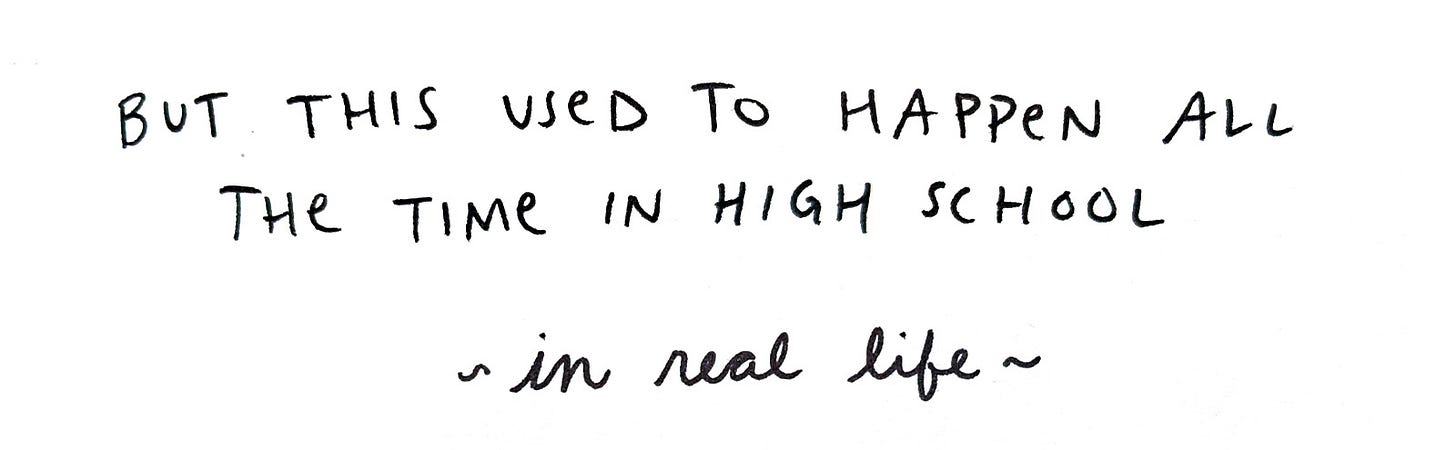 BUT THIS USeD TO HAPPeN ALL
THe TIMe IN HIGH SCHOOL
~ in real life ~